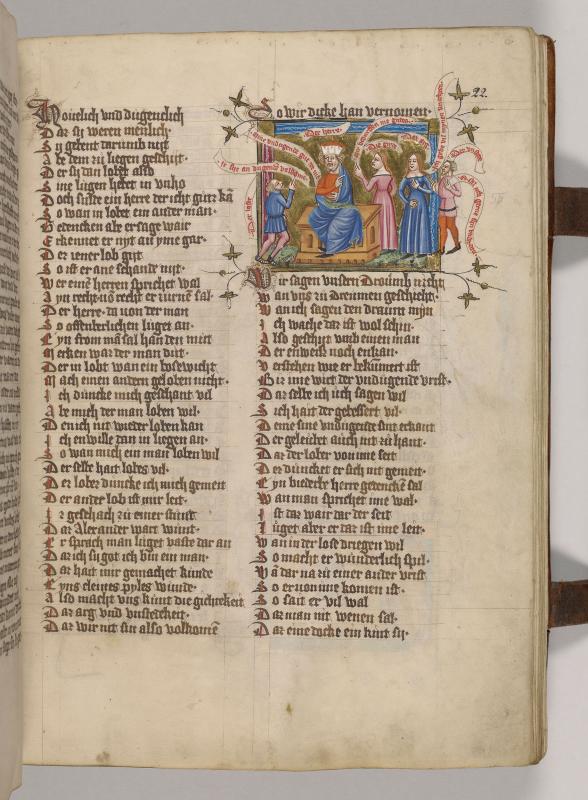 22
Houelich vnd dugentlich
Daz sy weren menlich
Sy gelent darumb nyt
Abe dem zu liegen geschyt
Der sy dan lobet also
Sine lugen hebet in vnho
Doch sulde eyn herre der icht gutz kā
So wan in lobet ein ander man
Gedencken abe er sage wair
Erkennet er nyt an yme gar
Der iener lob gyt
So ist er ane schande nyt
Wer eime herren sprichet wal
Ayn recht vō recht er zurnē sal
Der herre da von der man
So offenberlichen luget an
Eyn from mā sal han den mut
Merken waz der man dut
Der in lobt wan ein bosewicht
Mach einen andern geloben nicht
Ich duncke mich geschant vil
Abe mich der man loben wil
Den ich nit wieder loben kan
Ich enwille dan in liegen an
So wan mich ein man loben wil
Der selbe hait lobes vil
Der lobez duncke ich mich gemeit
Der ander lob ist mir leit
Iz geschach zu einer stunt
Daz Alexander wart wunt
Er sprach man luget vaste dar an
Daz ich sy got ich bin ein man
Daz hait mir gemachet kunde
Eyns cleines pyles wunde
Also macht vns kunt die gichtekeit
Daz arg vnd vnstedekeit
Daz wir nit sin also volkomē
So wir dicke han vernomen
Der herre
Wir sagen vnsern Droimb nicht
Wan vns zu Dreumen geschicht
Wan ich sagen den draum myn
Ich wache daz ist wol schin
Also geschyt vmb einen man
Der enweiß noch enkan
Verstehen wie er bekumert ist
Biz ime wirt der vndugende vrist
Daz selbe ich uch sagen wil
Sich hait der gebessert vil
Deme sine vndugende sint erkant
Der geleubet auch nit zu hant
Daz der lober von ime seit
Der duncket er sich nit gemeit
Eyn biederbe herre gedencken sal
Wan man sprichet ime wal
Ist daz wair daz der seit
Luget aber er daz ist ime leit
Wan in der lose driegen wil
So macht er wunderlich spil
Wā daz na zu einer ander vrist
So er von ime komen ist
So sait er vil wal
Daz man nit wenen sal
Daz eine docke ein kint sy